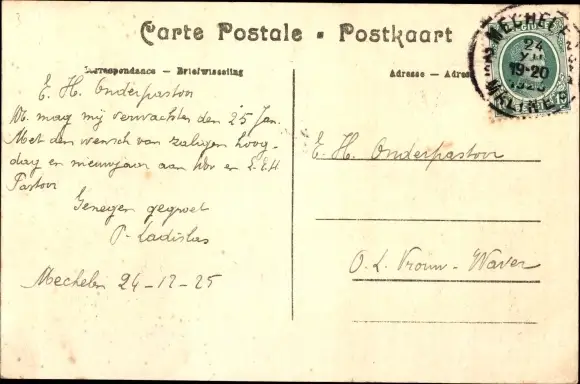 Carte Postale · Postkaart
Correspondance — Briefwisseling
Adresse — Adres
MECHELEN
24
XII
19-20
MALINES
E. H. Onderpastoor
W. mag mij verwachten den 25 Jan.
Met den wensch van zaligen hoog-
dag en nieuwjaar aan Uw en Z.E.H
Pastoor
Genegen gegroet
P. Ladislas
Mechelen 24-12-25
E. H. Onderpastoor
O. L. Vrouw - Waver